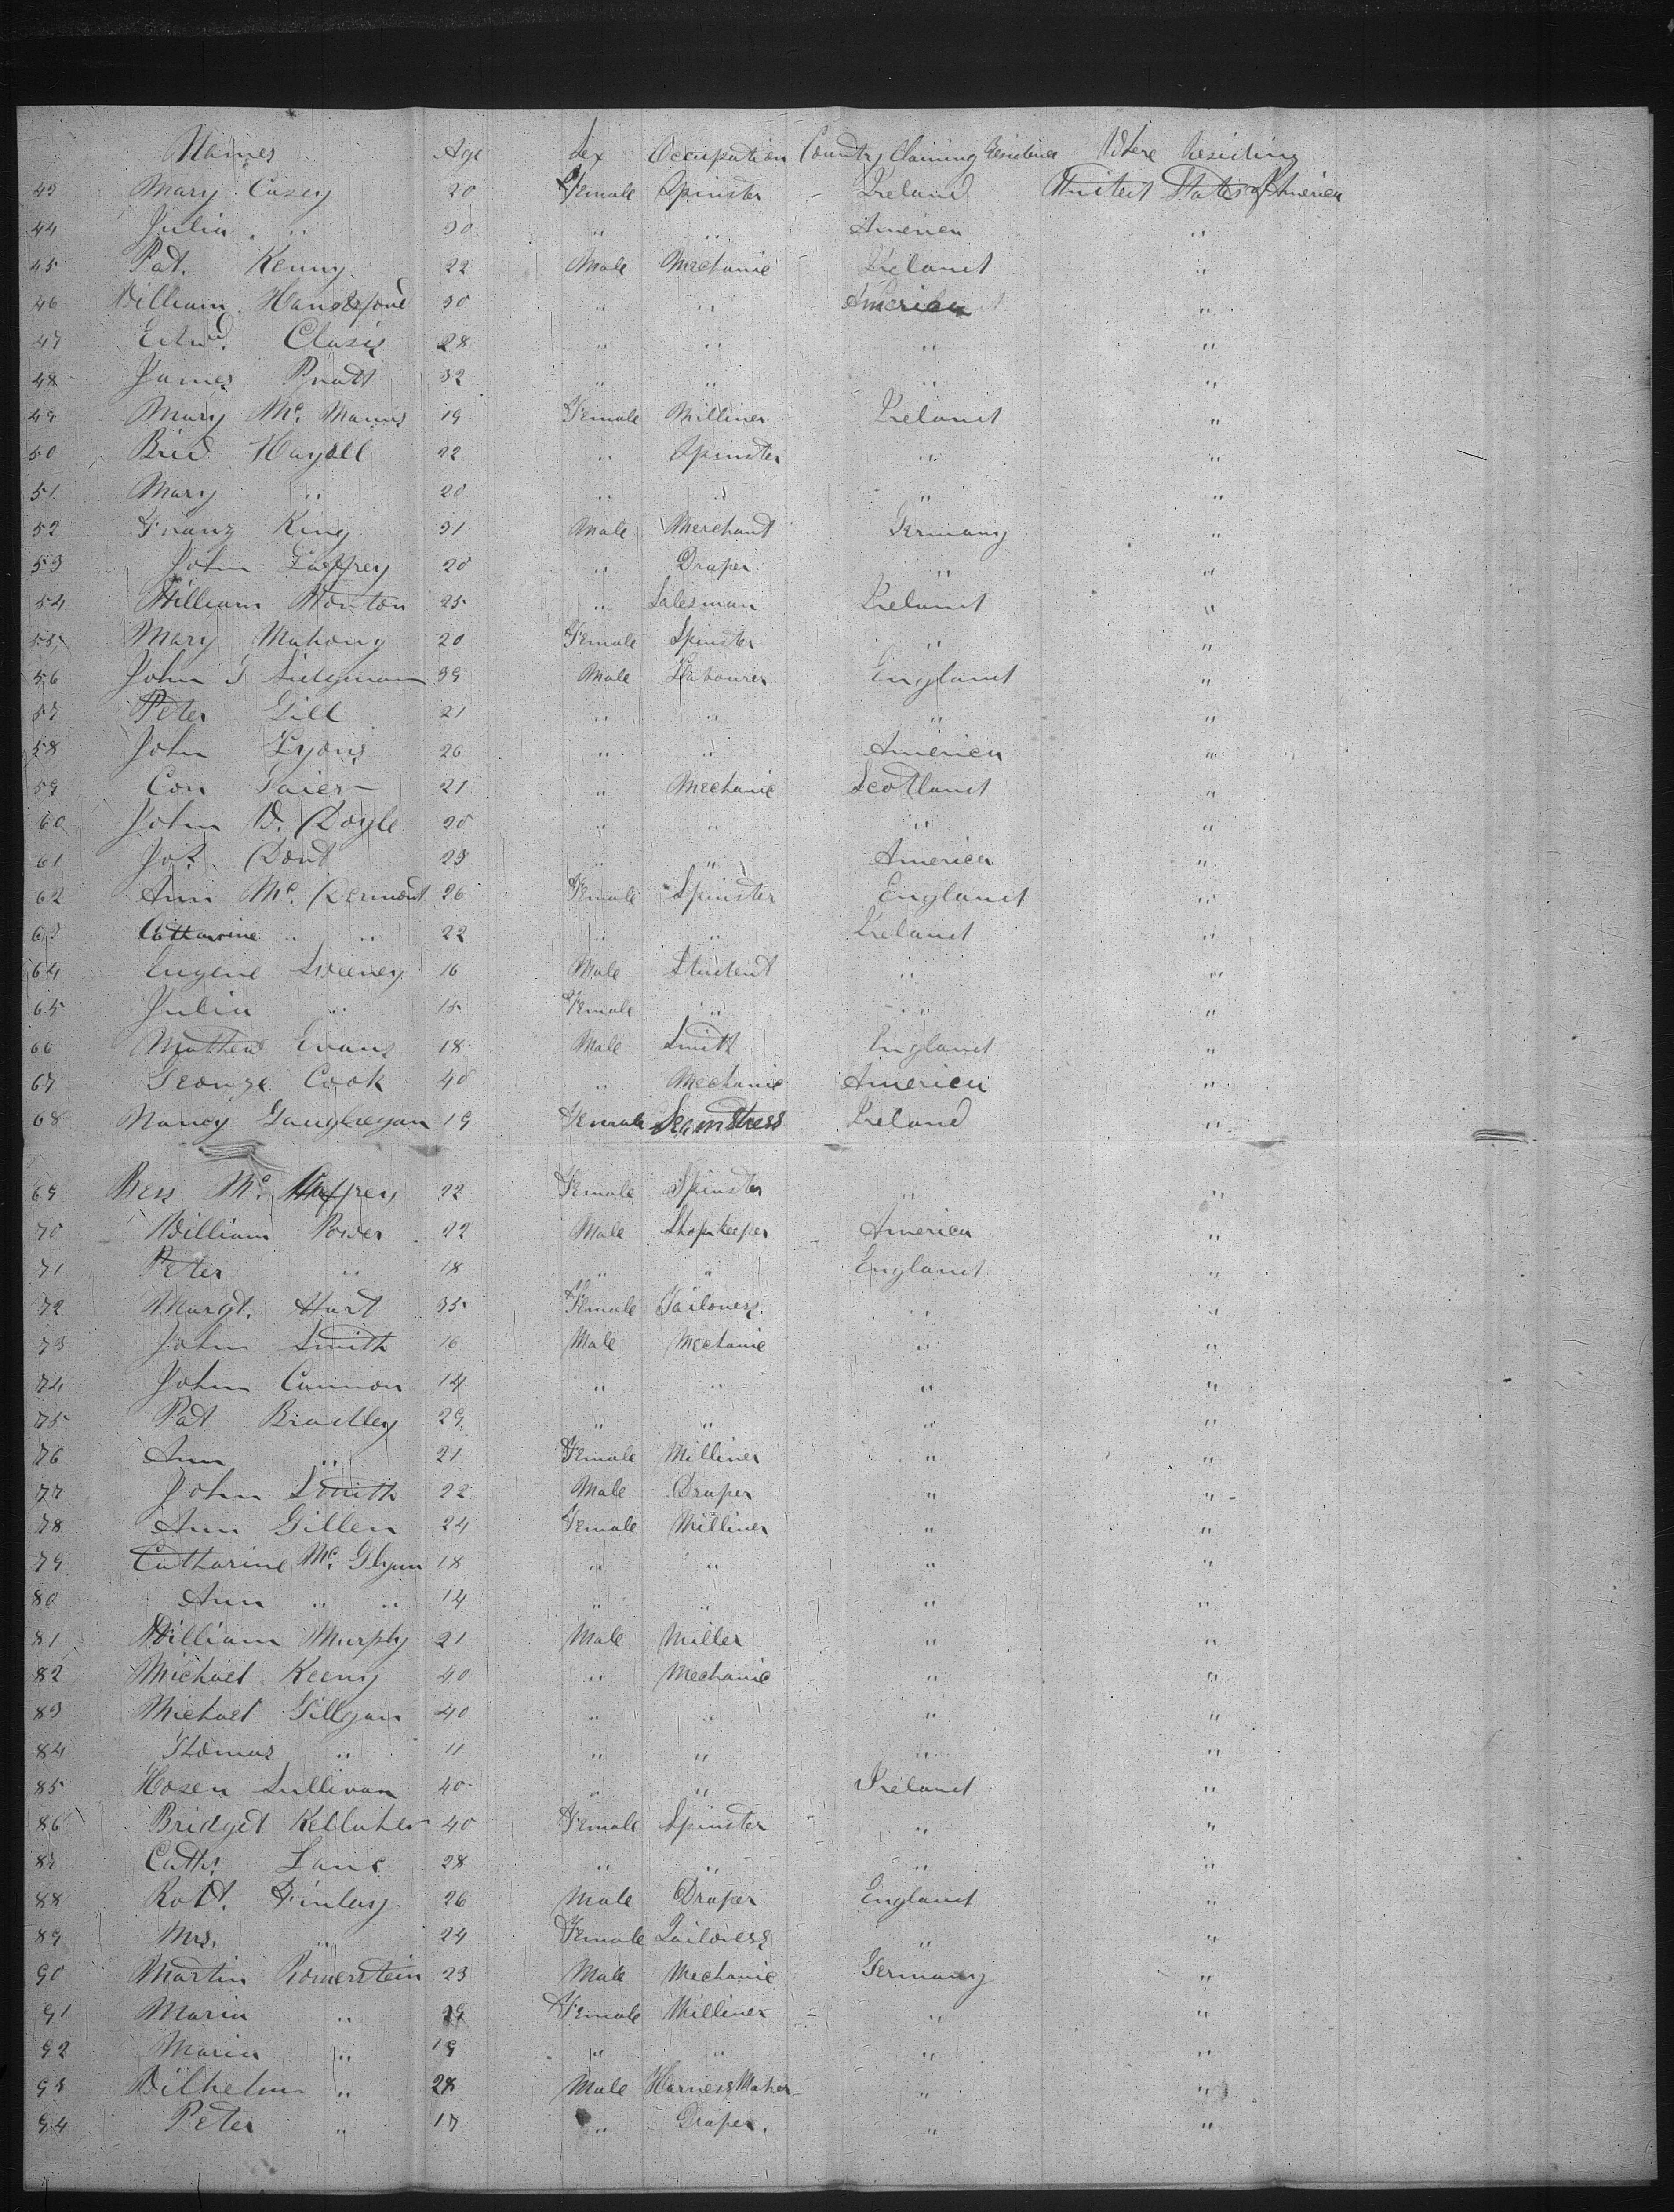 Names Age Sex Occupation Country Claiming Residence Where Residing
43 Mary Casey 20 Female Spinster Ireland United States of America
44 Julia " 30 " " America "
45 Pat. Kenny 22 Male Mechanic Ireland "
46 William 30 " " America "
47 Edwd. 28 " " " "
48 James Pratt 32 " " " "
49 Mary Mc. Manus 19 Female Milliner Ireland "
50 Brid 22 " Spinster " "
51 Mary " 20 " " " "
52 Franz King 31 Male Merchant Germany "
53 John 20 " Draper " "
54 William 25 " Salesman Ireland "
55 Mary Mahony 20 Female Spinster " "
56 John 39 Male Labourer England "
57 Peter Gill 21 " " " "
58 John Lyons 26 " " America "
59 Con 21 " Mechanic Scotland "
60 John Doyle 20 " " " "
61 Jos. 23 " " America "
62 Ann Mc. Dermont 26 Female Spinster England "
63 Catharine " " 22 " " Ireland "
64 Eugene Sweeney 16 Male Student " "
65 Julia " 15 Female " " "
66 Mathew Evans 18 Male Smith England "
67 George Cook 40 " Mechanic America "
68 Nancy 19 Female Seamstress Ireland "
69 Bess Mc. 22 Female Spinster " "
70 William Power 22 Male Shopkeeper America "
71 Peter " 18 " " England "
72 Margt. Hart 35 Female Tailoress " "
73 John Smith 16 Male Mechanic " "
74 John Cannon 14 " " " "
75 Pat Bradley 29 " " " "
76 Ann " 21 Female Milliner " "
77 John Smith 22 Male Draper " "
78 Ann Gillen 24 Female Milliner " "
79 Catharine Mc. Glynn 18 " " " "
80 Ann " " 14 " " " "
81 William Murphy 21 Male Miller " "
82 Michael Keeny 40 " Mechanic " "
83 Michael Gillgan 40 " " " "
84 Thomas " 11 " " " "
85 Sullivan 40 " " Ireland "
86 Bridget Kelluher 40 Female Spinster " "
87 Cath. Lane 28 " " " "
88 Robt. Finlay 26 Male Draper England "
89 Mrs. " 24 Female Tailoress " "
90 Martin Romerstein 23 Male Mechanic Germany "
91 Maria " 29 Female Milliner " "
92 Maria " 19 " " " "
93 Wilhelm " 28 Male Harness Maker " "
94 Peter " 17 " Draper. " "